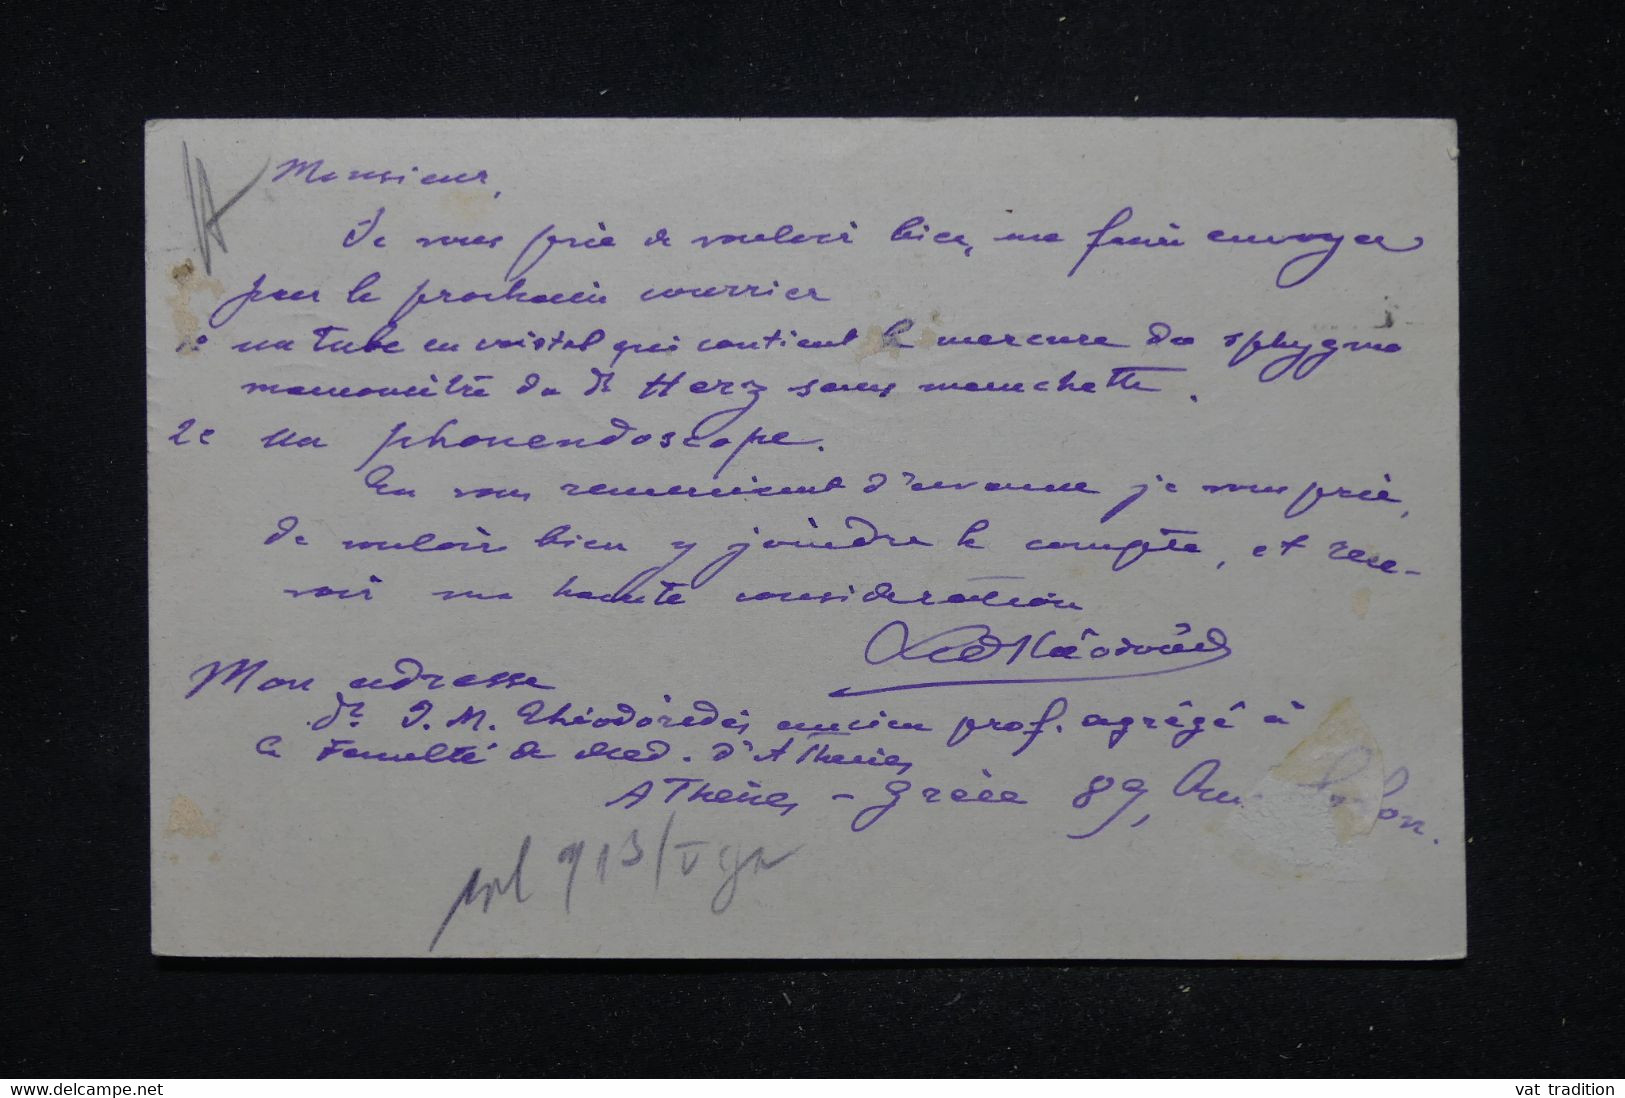 Monsieur,
Je vous prie de vouloir bien, me faire envoyer
par le prochain courrier
1º un tube en cristal qui contient le mercure du sphygmo
manomètre du Dr Herz sans manchette.
2e un phonendoscope.
En vous remerciant d'avance je vous prie,
de vouloir bien y joindre le compte, et rece-
voir ma haute considération
Mon adresse
Dr. J. M. Théodoridès ancien prof. agrégé à
la Faculté de Med. d'Athènes
Athènes - Grèce 89,
913/V
www.delcampe.net
vat tradition